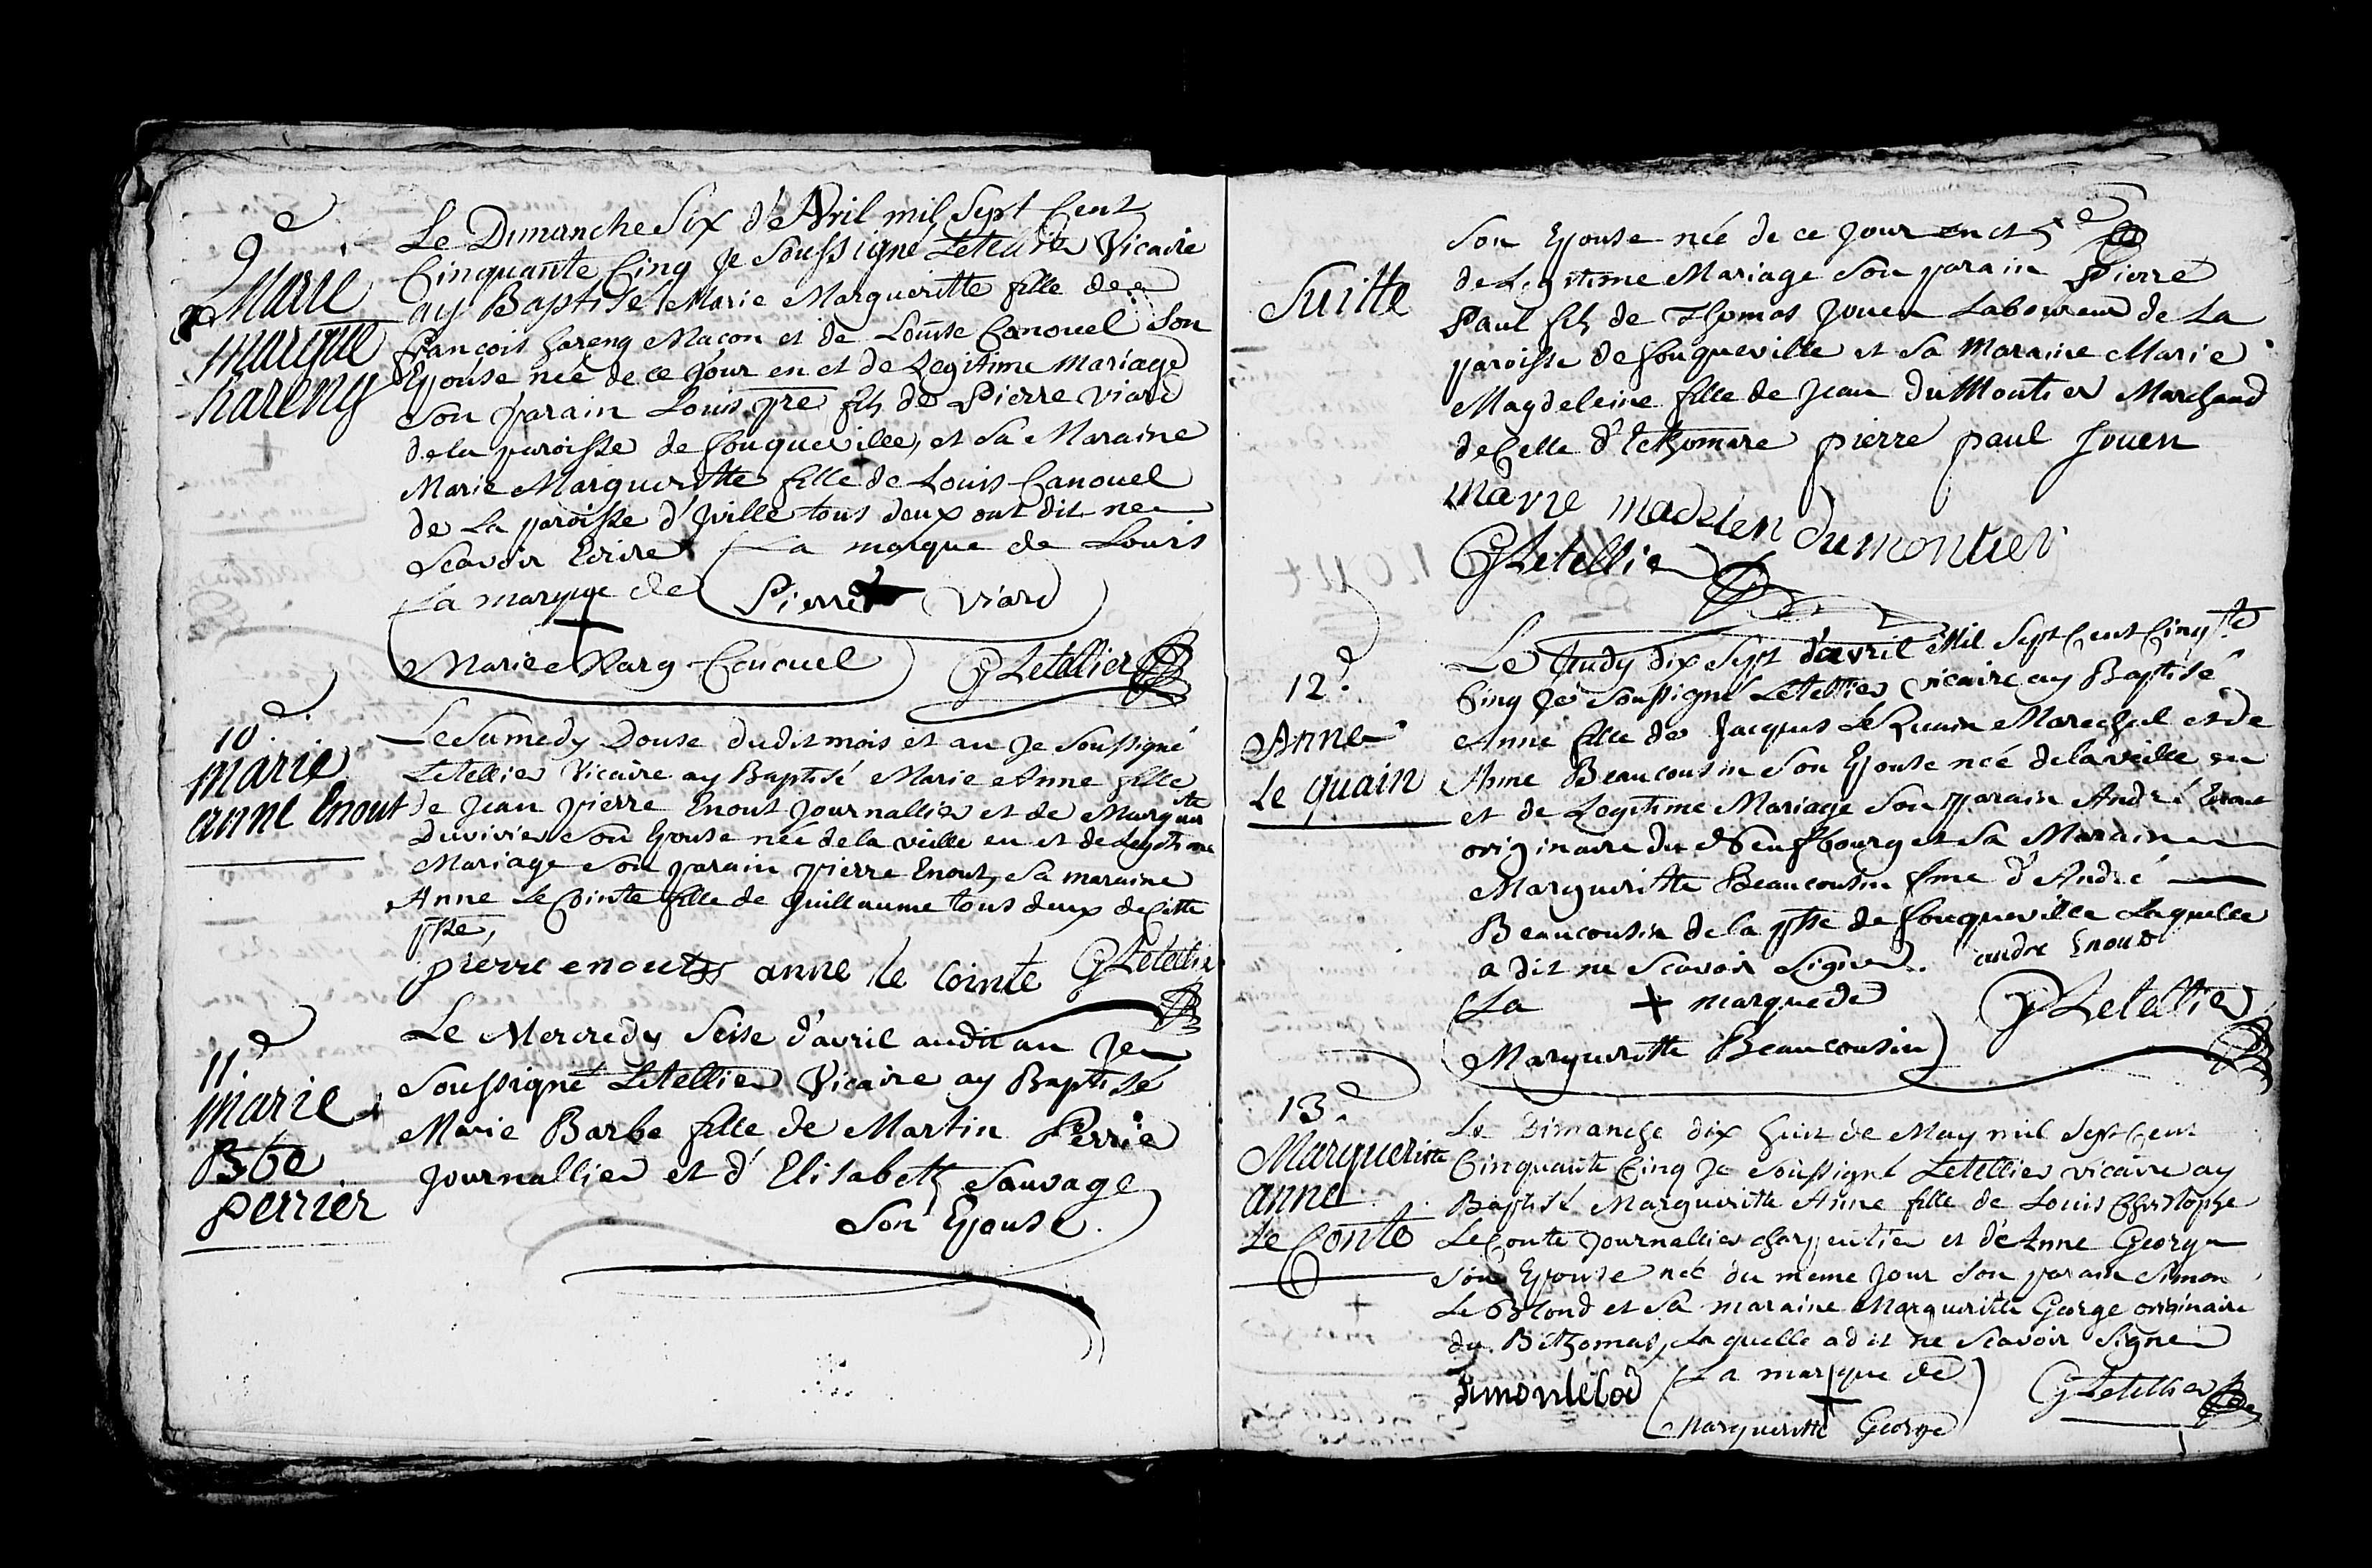 9e
Marie
Margue
hareng
Le Dimanche Six d'Avril mil Sept Cent
Cinquante Cinq Je Soussigné Letellier Vicaire
ay Baptisé Marie Margueritte fille de
François hareng Maçon et de Louise Canouel Son
Epouse née de ce Jour en et de Legitime mariage
Son parain Louis pre fils de Pierre Viard
de la paroisse de fouqueville, et Sa Maraine
Marie Margueritte fille de Louis Canouel
de La paroisse d'Iville tous deux ont dit ne
Scavoir Ecrire La marque de Louis
Pierre + Viard
La marque de
+
Marie Marg Canouel GLetellier
10.
marie
anne Enout
Le Samedy Douse dudit mois et an Je Soussigné
Letellier Vicaire ay Baptisé Marie Anne fille
de Jean pierre Enout Journallier et de Margutte
Duvivier Son Epouse née de la veille en et de Legitime
Mariage Son parain pierre Enout, Sa maraine
Anne Le Cointe fille de Guillaume tous deux de Cette
psse,
pierre enout anne le cointe GLetellier
11.
marie
Bbe
perrier
Le Mercredy Seise d'avril audit an Je
Soussigné Letellier Vicaire ay Baptisé
Marie Barbe fille de Martin Perrie
Journallier et d'Elisabeth Sauvage
Son Epouse.
Suitte
Son Epouse née de ce Jour en et
de Legitime Mariage Son parain Pierre
Paul fils de Thomas Jouen Laboureur de La
paroisse de fouqueville et Sa Maraine Marie
Magdeleine fille de Jean duMontier Marchand
de Celle d'Ecthomare pierre paul Jouen
marie madelen dumontier
GLetellier
12.
Anne
Le quain
Le Jeudy dix Sept d'avril Mil Sept Cent Cinqte
Cinq Je Soussigné Letellier vicaire ay Baptisé
Anne fille de Jacques Le Quain Marechal et de
Anne Beaucousin Son Epouse née de la veille en
et de Legitime Mariage Son parain André Enout
originaire du Neufbourg et Sa Maraine
Margueritte Beaucousin fme d'André
Beaucousin de la psse de fouqueville Laquelle
a dit ne Scavoir Signer. andre Enout
La + marque de
Margueritte Beaucousin GLetellier
13.
Margueritte
anne
Le Conte
Le Dimanche dix huit de May mil Sept Cent
Cinquante Cinq Je Soussigné Letellier vicaire ay
Baptisé Margueritte Anne fille de Louis Christophe
Le Conte Journallier charpentier et d'Anne George
Son Epouse née du meme Jour Son parain Simon
Le Blond et Sa maraine Margueritte George originaire
du Bcthomas, Laquelle a dit ne Scavoir Signer
La marque de
+
Margueritte George
GLetellier